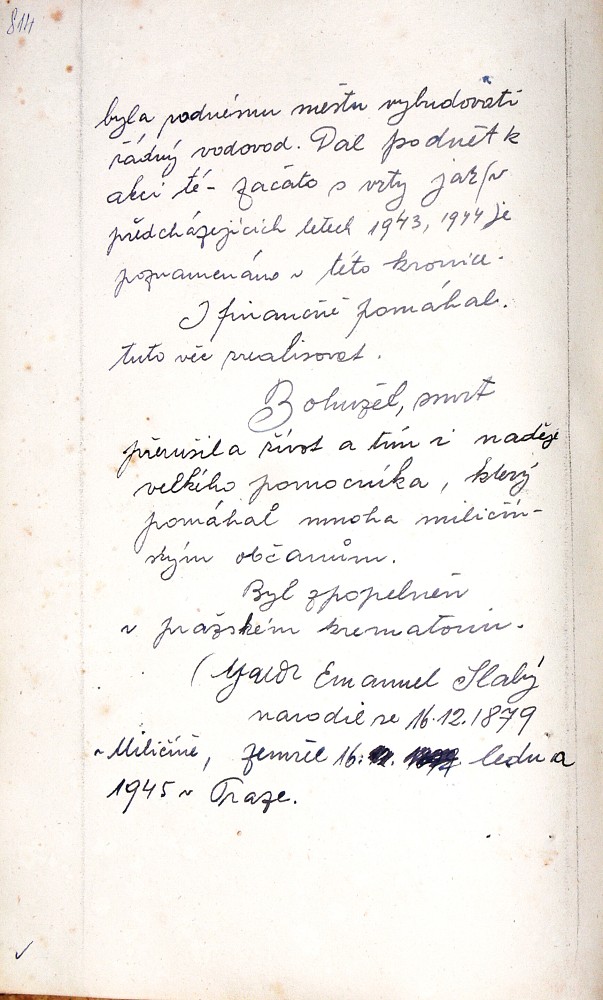 814
byla rodnému městu vybudovati
řádný vodovod. Dal podnět k
akci té - začato s vrty jak v
předcházejících letech 1943, 1944 je
poznamenáno v této kronice.
I finančně pomáhal.
tuto věc realisovat.
Bohužel, smrt
přerušila život a tím i naděje
velkého pomocníka, který
pomáhal mnoha miličín-
ským občanům.
Byl zpopelněn
v pražském krematoriu.
(Emanuel Slabý
narodil se 16.12.1879
v Miličíně, zemřel 16. ledna
1945 v Praze.